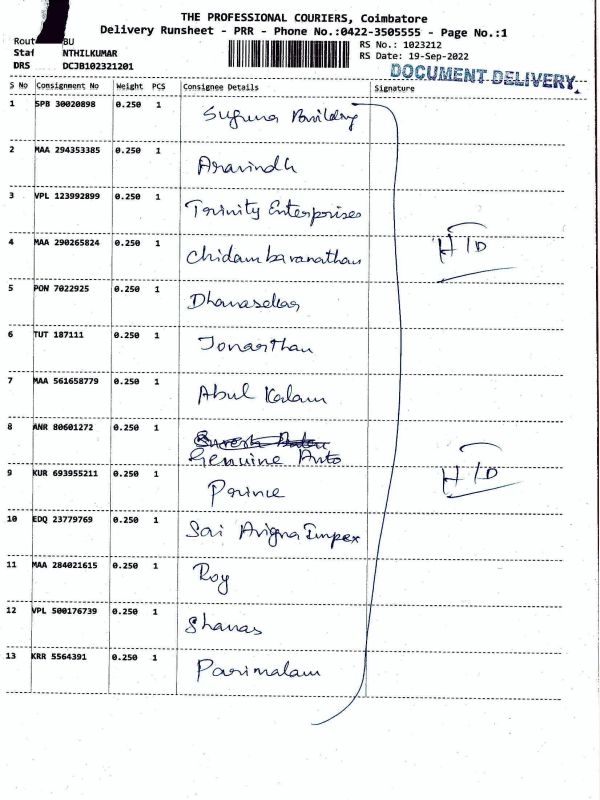 THE PROFESSIONAL COURIERS, Coimbatore
Delivery Runsheet - PRR - Phone No.:0422-3505555 - Page No.:1
Rout BU
RS No.: 1023212
Staf NTHILKUMAR
RS Date: 19-Sep-2022
DRS DCJB102321201
DOCUMENT DELIVERY
S No Consignment No Weight PCS Consignee Details Signature
1 SPB 30020898 0.250 1 Suguna Building
2 MAA 294353385 0.250 1 Aravindh
3 VPL 123992899 0.250 1 Trinity Enterprises
4 MAA 290265824 0.250 1 Chidambaranathan H/D
5 PON 7022925 0.250 1 Dhanasekar
6 TUT 187111 0.250 1 Jonarthan
7 MAA 561658779 0.250 1 Abul Kalam
8 ANR 80601272 0.250 1
Genuine Auto
9 KUR 693955211 0.250 1 Prince H/D
10 EDQ 23779769 0.250 1 Sai Avigna Impex
11 MAA 284021615 0.250 1 Roy
12 VPL 500176739 0.250 1 Shanas
13 KRR 5564391 0.250 1 Parimalam